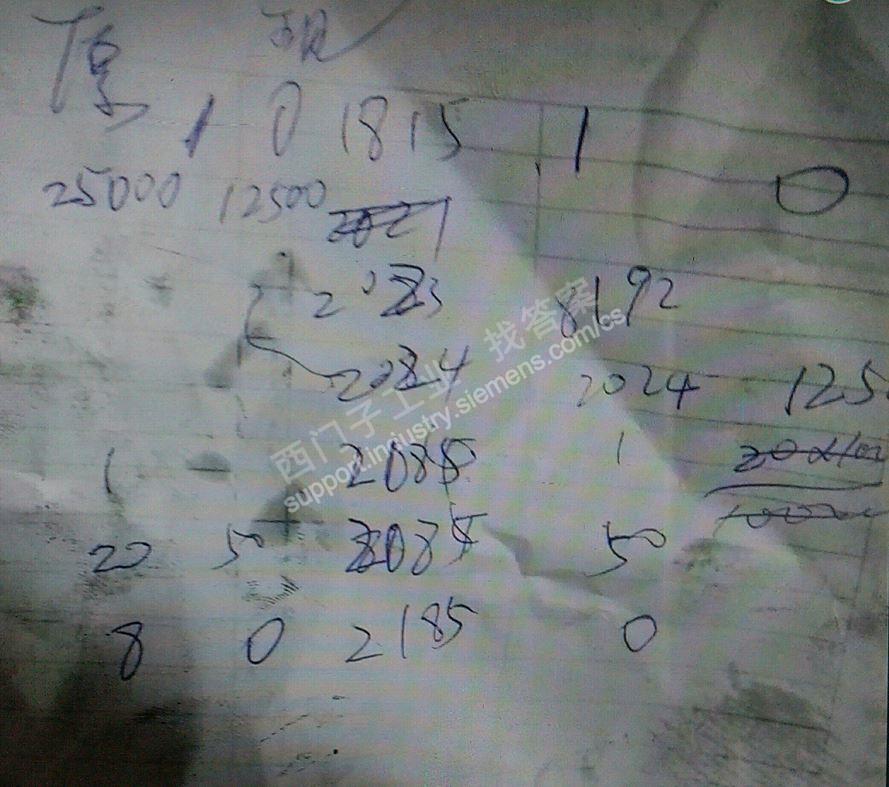 原 现
1 0 1815 1 0
25000 12500 2021
2083 8192
2084 2024 125
1 2085 1
20 50 2085 50
8 0 2185 0
西门子工业 找答案
support.industry.siemens.com/cs